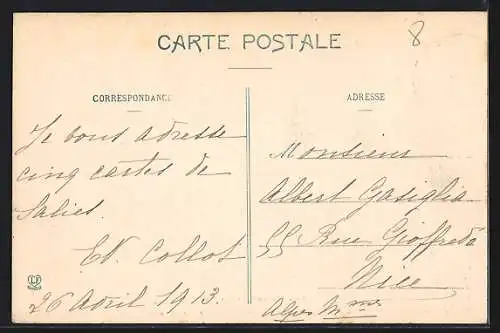 CARTE POSTALE
8
CORRESPONDANCE
Je vous adresse
cinq cartes de
Salies.
Collot
26 Avril 1913.
ADRESSE
Monsieur
Albert Gasiglia
55 Rue Gioffredo
Nice
Alpes Mmes